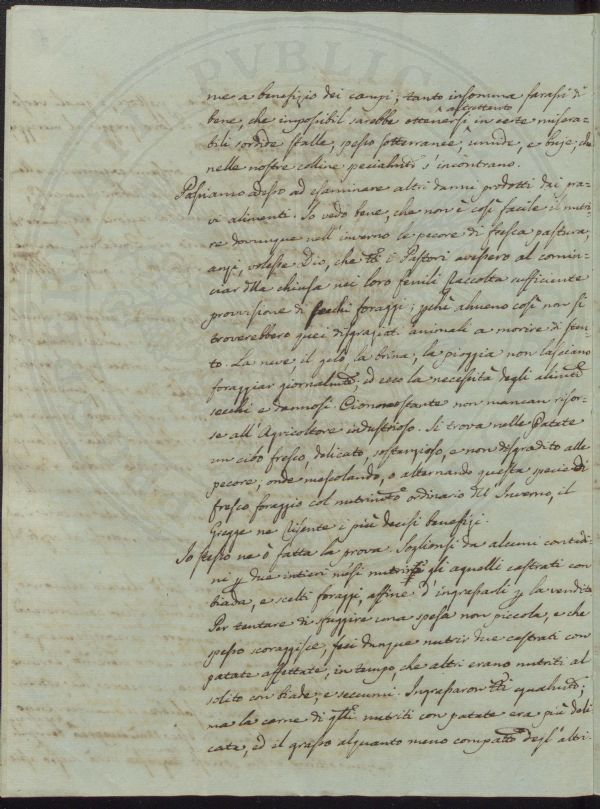 PVBLIC
me a benefizio dei campi; tanto insomma farassi di
bene, che impossibil sarebbe ottenersi altrettanto in certe misera-
bili sordide stalle, spesso sotterranee, umide, e buje, che
nelle nostre colline s'incontrano.
Passiamo adesso ad esaminare altri danni prodotti dai pra-
vi alimenti. Io vedo bene, che non è così facile il nutri-
re dovunque nell'inverno le pecore di fresca pastura;
anzi, volesse Dio, che i Pastori avessero al comin-
ciar della chiusa nei loro fenili raccolta sufficiente
provvisione di secchi foraggi; almeno così non si
troverebbero quei disgraziati animali a morire di sten-
to. La neve, il gelo, la brina, la pioggia non lasciano
foraggiar giornalmte, ed ecco la necessità degli alimti
secchi e dannosi. Cionnostante non mancan risor-
se all'Agricoltore industrioso. Si trova nelle Patate
un cibo fresco, delicato, sostanzioso, e non disgradito alle
pecore; onde mescolando, o alternando questa specie di
fresco foraggio col nutrimto ordinario del Inverno, il
Gregge ne risente i più decisi benefizj.
Io stesso ne ò fatta la prova. Soglionsi da alcuni contadi-
ni p due intieri mesi nutrire gli agnelli castrati con
biada, e scelti foraggi, affine d'ingrassarli p la vendita
Per tentare di sfuggire una spesa non piccola, e che
spesso scoraggisce, feci dunque nutrir due castrati con
patate affettate, in tempo, che altri erano nutriti al
solito con biade, e seccumi. Ingrassaron tti egualmte;
ma la carne di qlli nutriti con patate era più deli-
cata, ed il grasso alquanto meno compatto degl'altri.